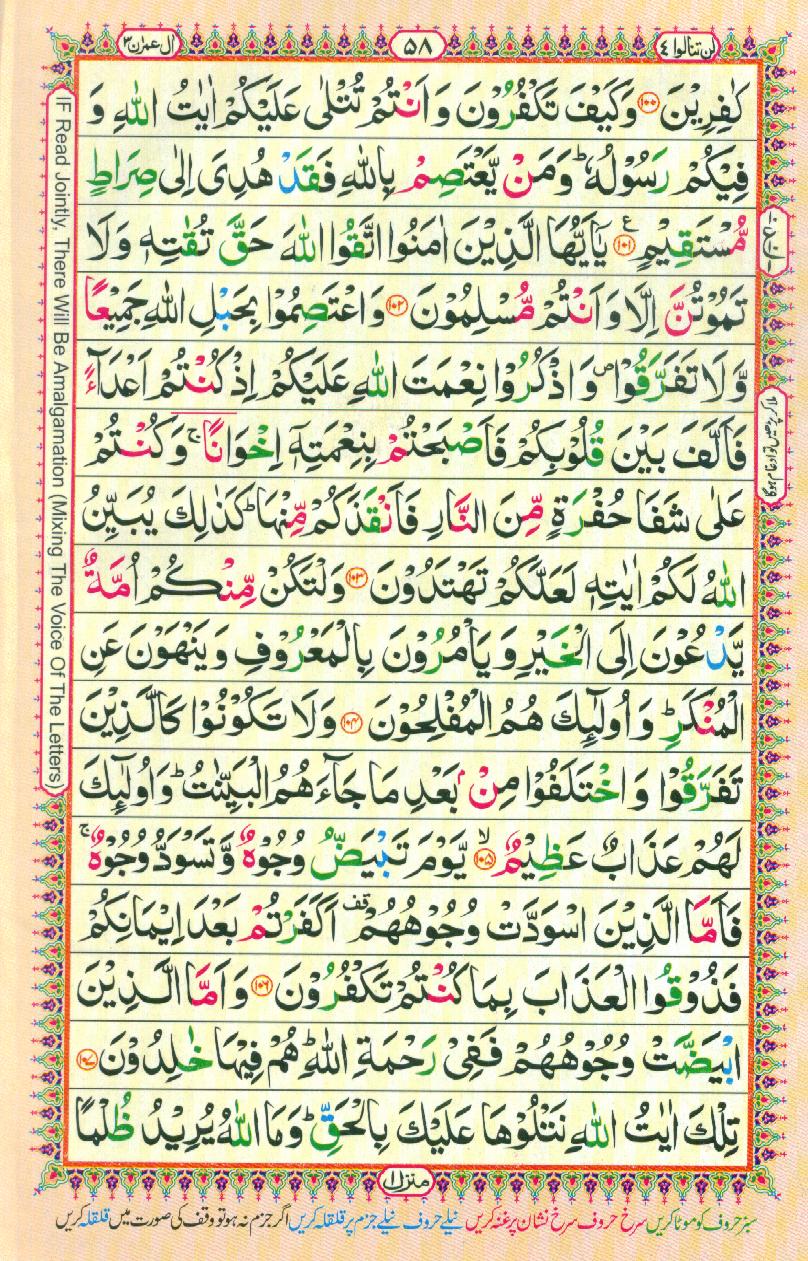 لن تنالوا ٤
٥٨
اٰل عمرٰن ٣
كٰفِرِيْنَ ﴿۱۰۰﴾ وَكَيْفَ تَكْفُرُوْنَ وَاَنْتُمْ تُتْلٰى عَلَيْكُمْ اٰيٰتُ اللّٰهِ وَ
فِيْكُمْ رَسُوْلُهٗ ؕ وَمَنْ يَّعْتَصِمْ بِاللّٰهِ فَقَدْ هُدِىَ اِلٰى صِرَاطٍ
مُّسْتَقِيْمٍ ﴿۱۰۱﴾ ع يٰۤاَيُّهَا الَّذِيْنَ اٰمَنُوا اتَّقُوا اللّٰهَ حَقَّ تُقٰتِهٖ وَلَا
تَمُوْتُنَّ اِلَّا وَاَنْتُمْ مُّسْلِمُوْنَ ﴿۱۰۲﴾ وَاعْتَصِمُوْا بِحَبْلِ اللّٰهِ جَمِيْعًا
وَّلَا تَفَرَّقُوْا ص وَاذْكُرُوْا نِعْمَتَ اللّٰهِ عَلَيْكُمْ اِذْ كُنْتُمْ اَعْدَآءً
فَاَلَّفَ بَيْنَ قُلُوْبِكُمْ فَاَصْبَحْتُمْ بِنِعْمَتِهٖۤ اِخْوَانًا ۚ وَكُنْتُمْ
عَلٰى شَفَا حُفْرَةٍ مِّنَ النَّارِ فَاَنْقَذَكُمْ مِّنْهَا ؕ كَذٰلِكَ يُبَيِّنُ
اللّٰهُ لَكُمْ اٰيٰتِهٖ لَعَلَّكُمْ تَهْتَدُوْنَ ﴿۱۰۳﴾ وَلْتَكُنْ مِّنْكُمْ اُمَّةٌ
يَّدْعُوْنَ اِلَى الْخَيْرِ وَيَاْمُرُوْنَ بِالْمَعْرُوْفِ وَيَنْهَوْنَ عَنِ
الْمُنْكَرِ ؕ وَاُولٰٓئِكَ هُمُ الْمُفْلِحُوْنَ ﴿۱۰۴﴾ وَلَا تَكُوْنُوْا كَالَّذِيْنَ
تَفَرَّقُوْا وَاخْتَلَفُوْا مِنْۢ بَعْدِ مَا جَآءَهُمُ الْبَيِّنٰتُ ؕ وَاُولٰٓئِكَ
لَهُمْ عَذَابٌ عَظِيْمٌ ﴿۱۰۵﴾ ۙ يَّوْمَ تَبْيَضُّ وُجُوْهٌ وَّتَسْوَدُّ وُجُوْهٌ ۚ
فَاَمَّا الَّذِيْنَ اسْوَدَّتْ وُجُوْهُهُمْ قف اَكَفَرْتُمْ بَعْدَ اِيْمَانِكُمْ
فَذُوْقُوا الْعَذَابَ بِمَا كُنْتُمْ تَكْفُرُوْنَ ﴿۱۰۶﴾ وَاَمَّا الَّذِيْنَ
ابْيَضَّتْ وُجُوْهُهُمْ فَفِىْ رَحْمَةِ اللّٰهِ ؕ هُمْ فِيْهَا خٰلِدُوْنَ ﴿۱۰۷﴾
تِلْكَ اٰيٰتُ اللّٰهِ نَتْلُوْهَا عَلَيْكَ بِالْحَقِّ ؕ وَمَا اللّٰهُ يُرِيْدُ ظُلْمًا
منزل ١
سبز حروف کو موٹا کریں سرخ حروف سرخ نشان پر غنہ کریں نیلے حروف نیلے جزم پر قلقلہ کریں اگر جزم نہ ہو تو وقف کی صورت میں قلقلہ کریں
IF Read Jointly, There Will Be Amalgamation (Mixing The Voice Of The Letters)